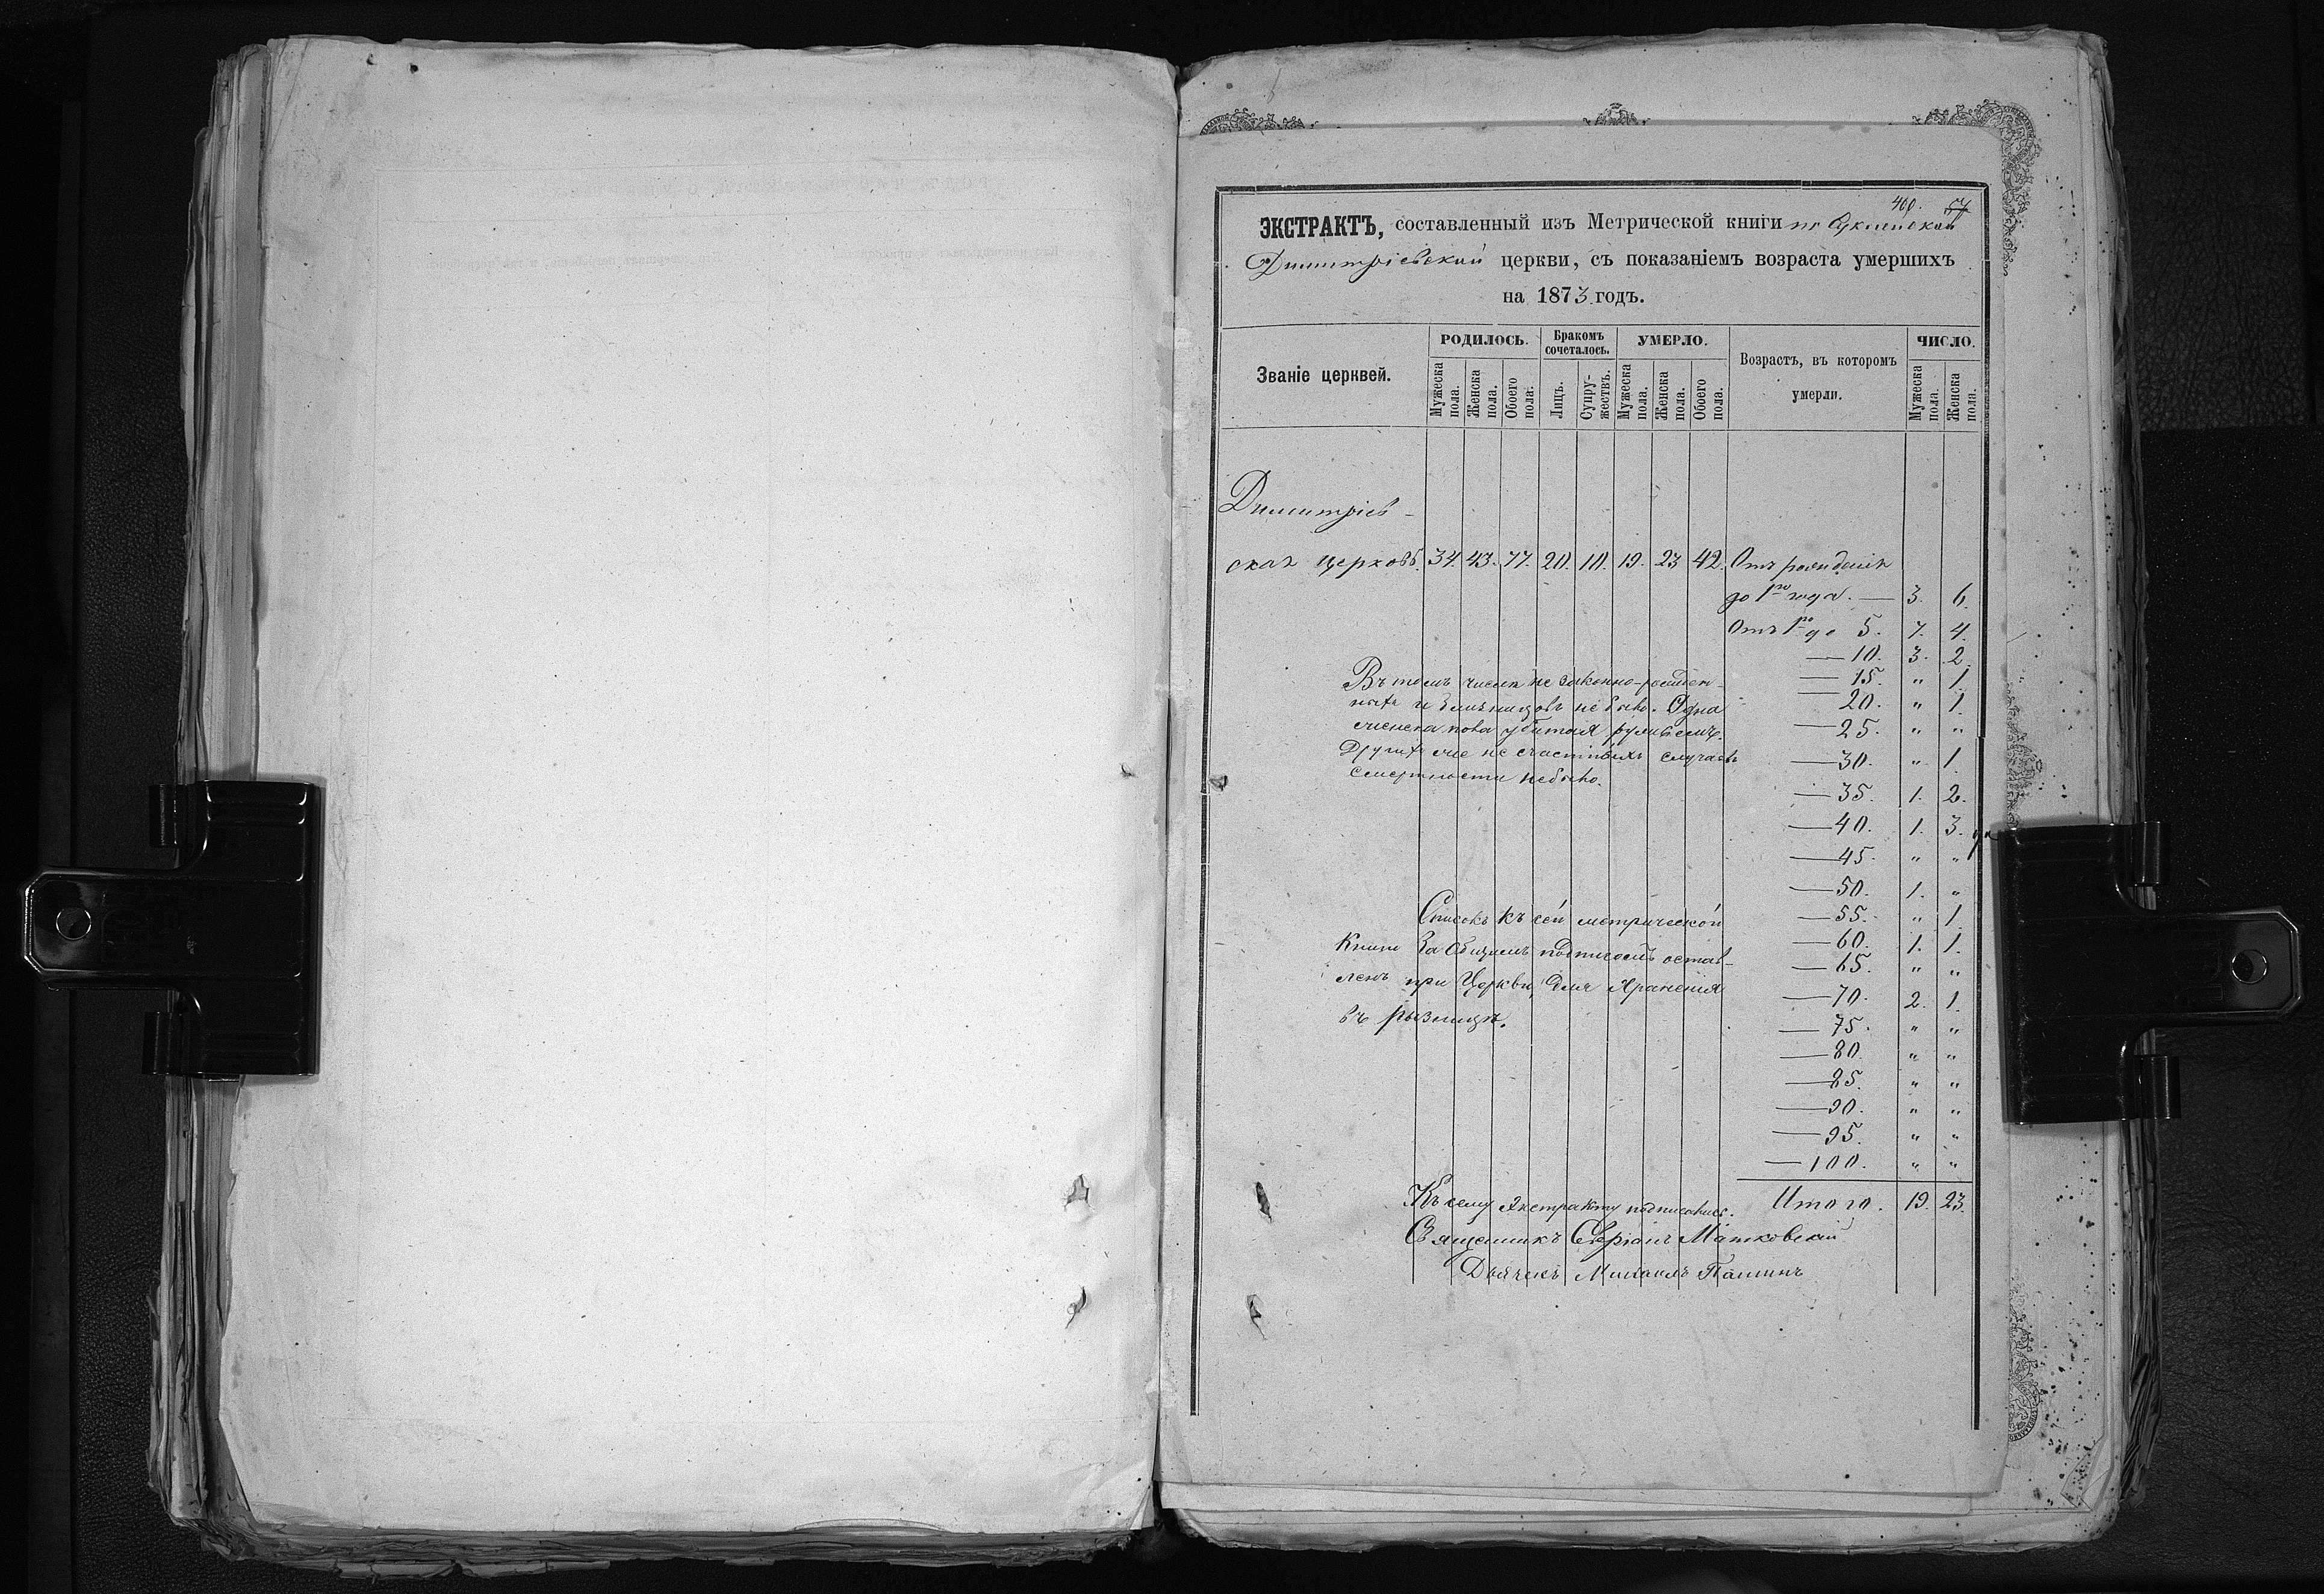 400. 57
ЭКСТРАКТЪ, составленный изъ Метрической книги по
Димитріевской церкви, съ показаніемъ возраста умершихъ
на 1873 годъ.
Званіе церквей.
РОДИЛОСЬ.
Бракомъ сочеталось.
УМЕРЛО.
Возрастъ, въ которомъ умерли.
ЧИСЛО.
Мужеска пола.
Женска пола.
Обоего пола.
Лицъ.
Супружествъ.
Мужеска пола.
Женска пола.
Обоего пола.
Мужеска пола.
Женска пола.
Димитріев-
ская церковь. 34. 43. 77. 20. 10. 19. 23 42. Отъ рожденія
до 1го года. — 3. 6.
Отъ 1го до 5. 7. 4.
— 10. 3. 2.
— 15. " 1.
— 20. " 1.
— 25. " "
— 30. " 1.
— 35. 1. 2.
— 40. 1. 3.
— 45. " "
— 50. 1. "
— 55. " 1.
— 60. 1. 1.
— 65. " "
— 70. 2. 1.
— 75. " "
— 80. " "
— 85. " "
— 90. " "
— 95. " "
— 100. " "
Итого. 19. 23.
Въ томъ числѣ не законно-рожден-
ныхъ и близнецовъ не было. Одна
женска пола убитая
Другихъ же не счастныхъ случаевъ
смертности небыло.
Списокъ къ сей метрической
Книги За общимъ подписомъ остав-
ленъ при Церкви, для Храненія
въ рызницѣ.
Къ сему Экстракту подписались.
Священникъ Севріанъ Матковскій
Дьячекъ Михаилъ Пашинъ